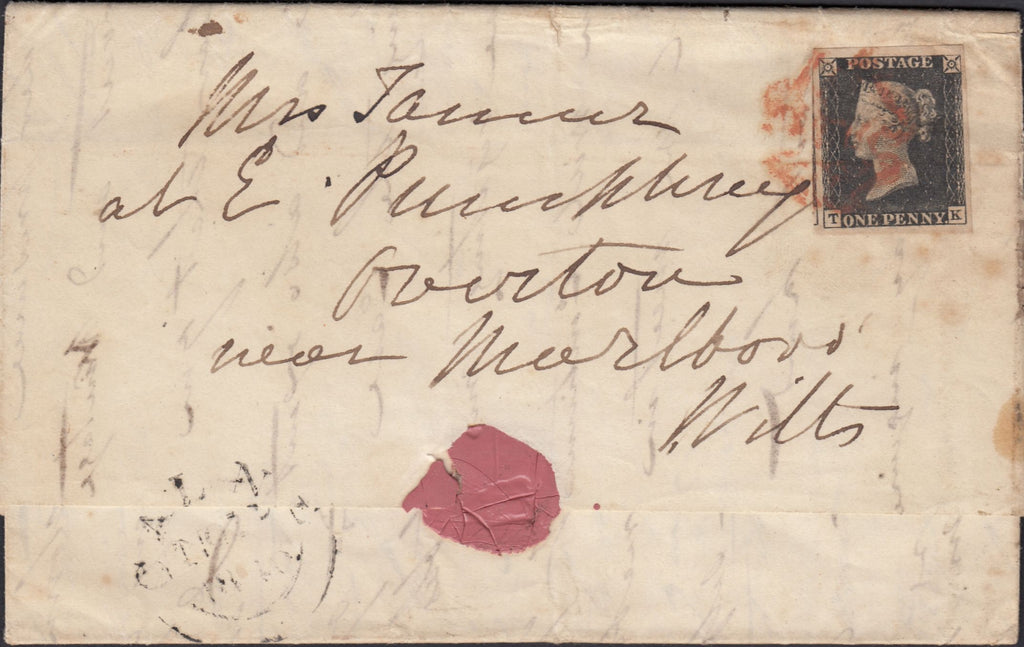 POSTAGE
T ONE PENNY K
Mrs Tanner
at E. Pumphrey
Overton
near Marlboro'
Wilts